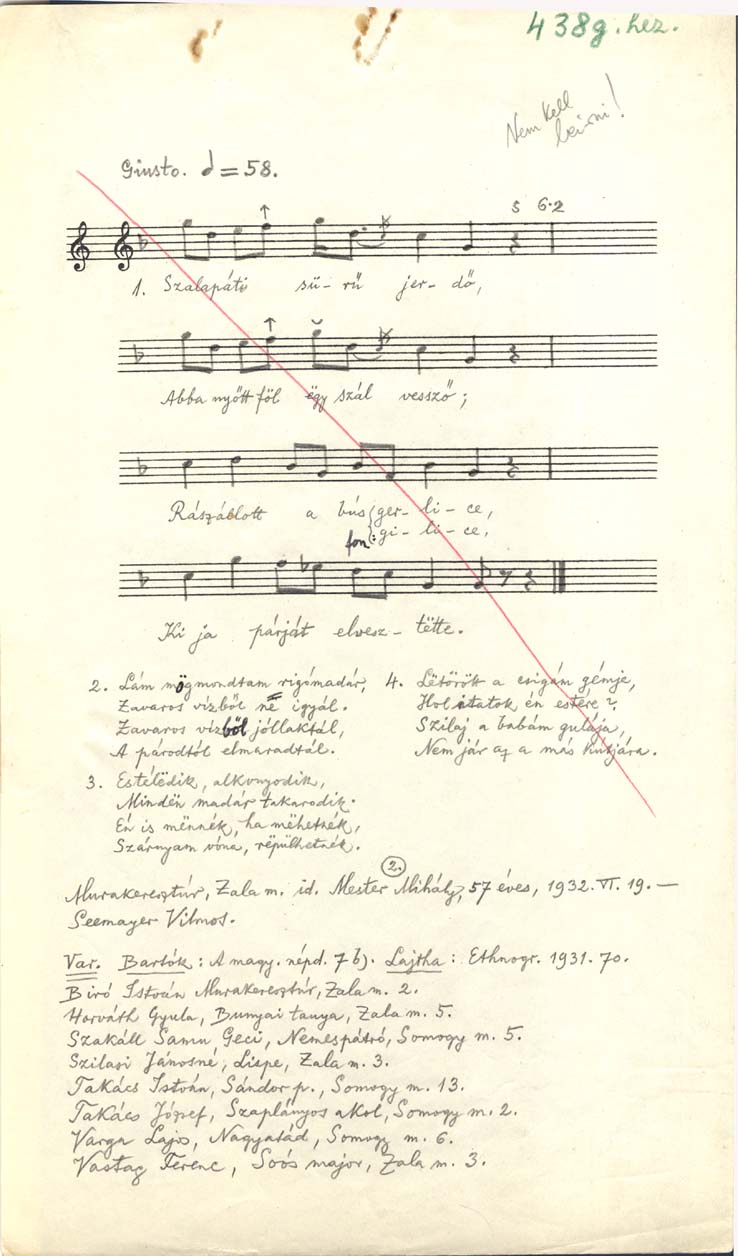 438g. hez.
Nem kell
beirni!
Giusto. = 58.
5 6·2
1. Szalapáti sü- rű jer- dő,
Abba nyőtt föl ëgy szál vessző;
Rászállott a bús ger- li- ce,
gi- li- ce,
fon:
Ki ja párját elvesz- tëtte.
2. Lám mögmondtam rigómadár,
Zavaros vízből në igyál.
Zavaros vízből jóllaktál,
A párodtól elmaradtál.
3. Estélëdik, alkonyodik,
Mindën madár takarodik.
Én is mënnék, ha mëhetnék,
Szárnyam vóna, rëpülhetnék.
4. Lëtörött a csigám gémje,
Hol itatok én estére?
Szilaj a babám gulája,
Nem jár az a más kutjára.
2.
Murakeresztúr, Zala m. id. Mester Mihály, 57 éves, 1932. VI. 19. —
Seemayer Vilmos.
Var. Bartók: A magy. népd. 7 b). Lajtha: Ethnogr. 1931. 70.
Biró István Murakeresztúr, Zala m. 2.
Horváth Gyula, Bunyai tanya, Zala m. 5.
Szakáll Samu Geci, Nemespátró, Somogy m. 5.
Szilasi Jánosné, Lispe, Zala m. 3.
Takács István, Sándor p., Somogy m. 13.
Takács József, Szaplányos akol, Somogy m. 2.
Varga Lajos, Nagyatád, Somogy m. 6.
Vastag Ferenc, Soós major, Zala m. 3.